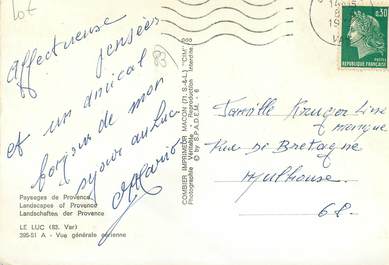 Affectueuse
pensées
et un amical
bonjour de mon
séjour au Luc
Paysages de Provence
Landscapes of Provence
Landschaftes der Provence
LE LUC (83. Var)
395-51 A - Vue générale aérienne
COMBIER IMPRIMEUR MACON (71. S.-&-L.) "CIM"
Photographie Véritable - Reproduction Interdite
© by S.P.A.D.E.M. - 6
83
0,30
REPUBLIQUE FRANÇAISE
VAR
Famille
Rue de Bretagne
Mulhouse
68.